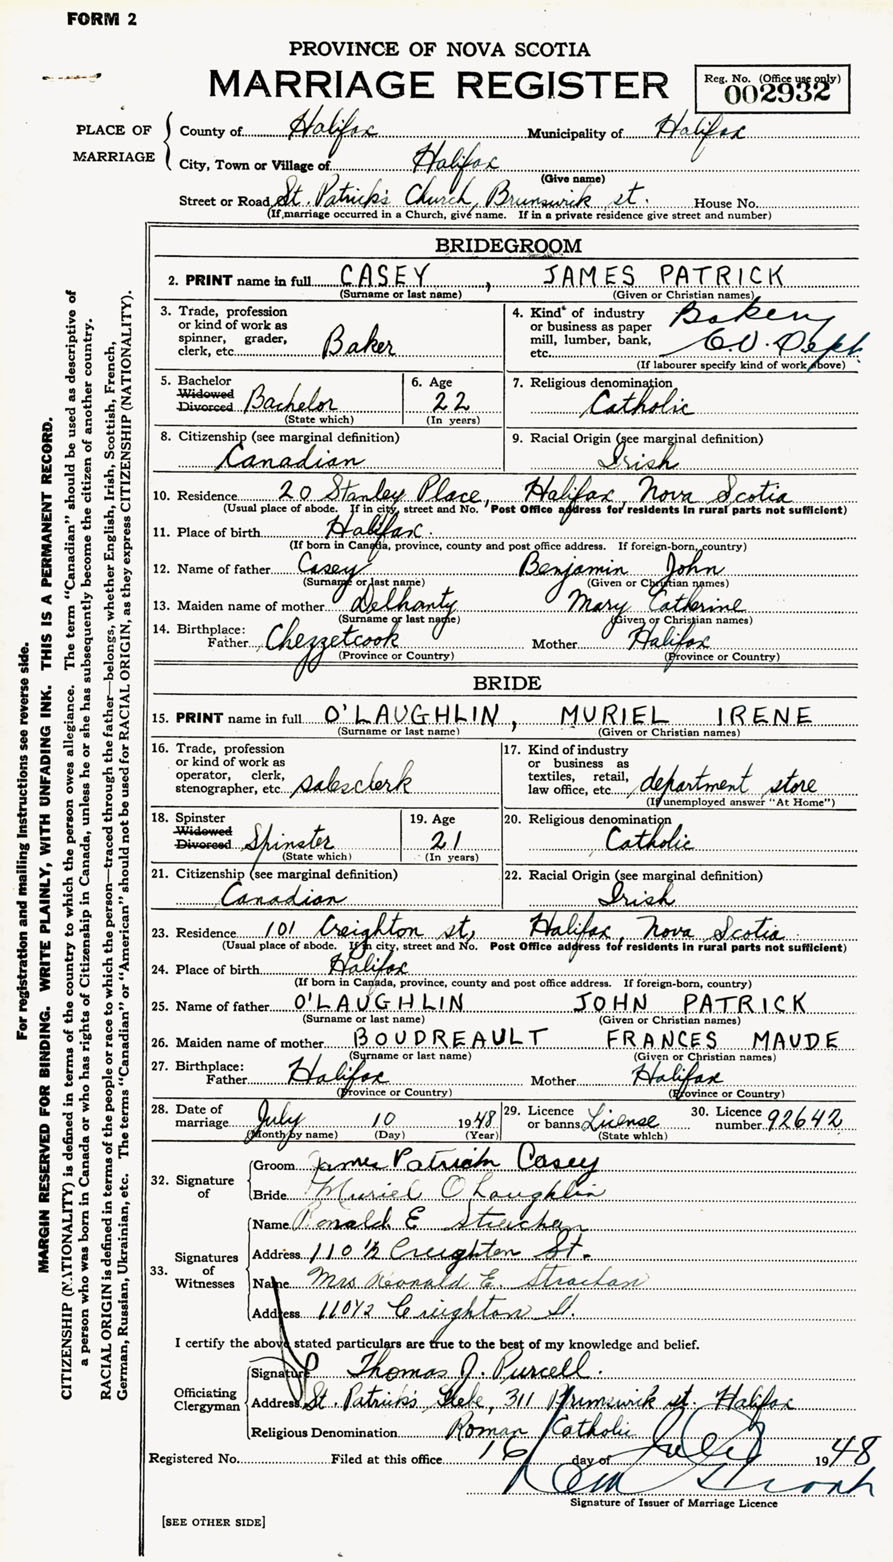 FORM 2
PROVINCE OF NOVA SCOTIA
MARRIAGE REGISTER
Reg. No. (Office use only)
002932
PLACE OF MARRIAGE
County of Halifax Municipality of Halifax
City, Town or Village of Halifax
(Give name)
Street or Road St. Patrick's Church, Brunswick st. House No.
(If marriage occurred in a Church, give name. If in a private residence give street and number)
BRIDEGROOM
2. PRINT name in full CASEY, JAMES PATRICK
(Surname or last name) (Given or Christian names)
3. Trade, profession or kind of work as spinner, grader, clerk, etc. Baker
4. Kind of industry or business as paper mill, lumber, bank, etc. Bakery Co. Dept.
(If labourer specify kind of work above)
5. Bachelor Widowed Divorced Bachelor
(State which)
6. Age 22
(In years)
7. Religious denomination Catholic
8. Citizenship (see marginal definition) Canadian
9. Racial Origin (see marginal definition) Irish
10. Residence 20 Stanley Place, Halifax, Nova Scotia
(Usual place of abode. If in city, street and No. Post Office address for residents in rural parts not sufficient)
11. Place of birth Halifax.
(If born in Canada, province, county and post office address. If foreign-born, country)
12. Name of father Casey Benjamin John
(Surname or last name) (Given or Christian names)
13. Maiden name of mother Delhanty Mary Catherine
(Surname or last name) (Given or Christian names)
14. Birthplace: Father Chezzetcook Mother Halifax
(Province or Country) (Province or Country)
BRIDE
15. PRINT name in full O'LAUGHLIN, MURIEL IRENE
(Surname or last name) (Given or Christian names)
16. Trade, profession or kind of work as operator, clerk, stenographer, etc. salesclerk
17. Kind of industry or business as textiles, retail, law office, etc. department store
(If unemployed answer "At Home")
18. Spinster Widowed Divorced Spinster
(State which)
19. Age 21
(In years)
20. Religious denomination Catholic
21. Citizenship (see marginal definition) Canadian
22. Racial Origin (see marginal definition) Irish
23. Residence 101 Creighton st, Halifax, Nova Scotia.
(Usual place of abode. If in city, street and No. Post Office address for residents in rural parts not sufficient)
24. Place of birth Halifax
(If born in Canada, province, county and post office address. If foreign-born, country)
25. Name of father O'LAUGHLIN JOHN PATRICK
(Surname or last name) (Given or Christian names)
26. Maiden name of mother BOUDREAULT FRANCES MAUDE
(Surname or last name) (Given or Christian names)
27. Birthplace: Father Halifax Mother Halifax
(Province or Country) (Province or Country)
28. Date of marriage July 10 1948
(Month by name) (Day) (Year)
29. Licence or banns License
(State which)
30. Licence number 92642
32. Signature of
Groom James Patrick Casey
Bride Muriel O'Laughlin
33. Signatures of Witnesses
Name Ronald E Strachan
Address 110 ½ Creighton St.
Name Mrs Ronald E. Strachan
Address 110½ Creighton St.
I certify the above stated particulars are true to the best of my knowledge and belief.
Officiating Clergyman
Signature Thomas J. Purcell.
Address St. Patrick's Glebe, 311 Brunswick st. Halifax
Religious Denomination Roman Catholic
Registered No. Filed at this office 16 day of July 1948
Signature of Issuer of Marriage Licence
[SEE OTHER SIDE]
For registration and mailing instructions see reverse side.
MARGIN RESERVED FOR BINDING. WRITE PLAINLY, WITH UNFADING INK. THIS IS A PERMANENT RECORD.
CITIZENSHIP (NATIONALITY) is defined in terms of the country to which the person owes allegiance. The term "Canadian" should be used as descriptive of
a person who was born in Canada or who has rights of Citizenship in Canada, unless he or she has subsequently become the citizen of another country.
RACIAL ORIGIN is defined in terms of the people or race to which the person—traced through the father—belongs, whether English, Irish, Scottish, French,
German, Russian, Ukrainian, etc. The terms "Canadian" or "American" should not be used for RACIAL ORIGIN, as they express CITIZENSHIP (NATIONALITY).